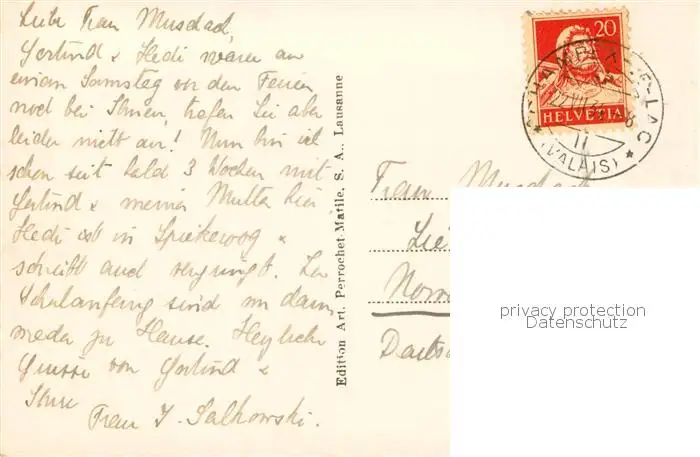 Liebe Frau Musdack,
Gertrud & Hedi waren an
einem Samstag vor den Ferien
noch bei Ihnen, trafen Sie aber
leider nicht an! Nun bin ich
schon seit bald 3 Wochen mit
Gertrud & meiner Mutter hier
Hedi ist in Spiekeroog &
schreibt auch vergnügt. Zu
Schulanfang sind wir dann
wieder zu Hause. Herzliche
Grüsse von Gertrud &
Ihrer
Frau J. Salkowski.
Edition Art. Perrochet-Matile, S. A., Lausanne
20
HELVETIA
CHAMPEX-LE-LAC
(VALAIS)
Frau
privacy protection
Datenschutz